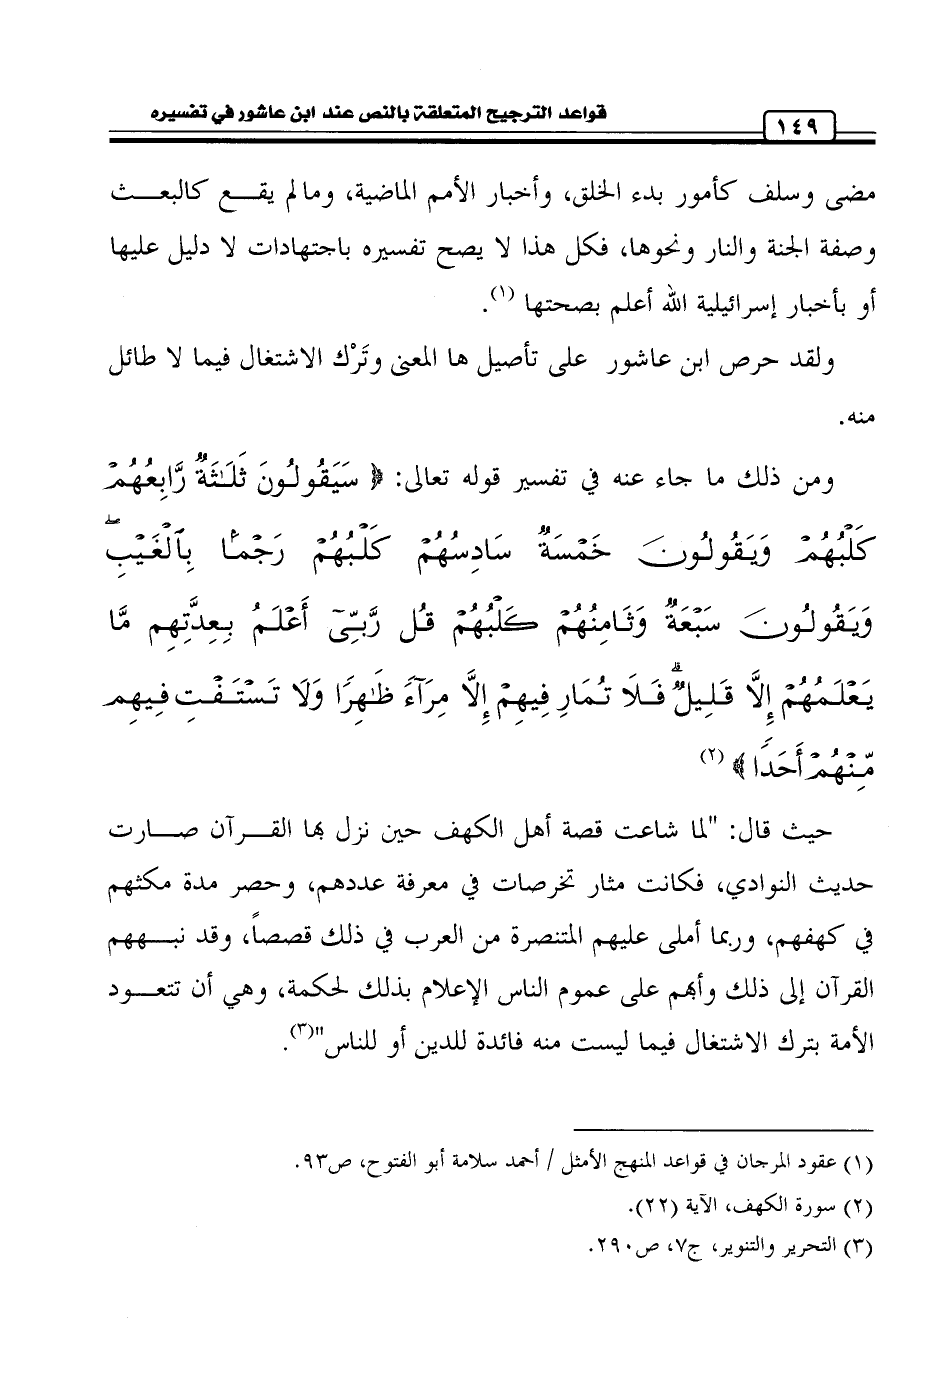 قواعد الترجيح المتعلقة بالنص عند ابن عاشور في تفسيره
١٤٩
مضى وسلف كأمور بدء الخلق، وأخبار الأمم الماضية، وما لم يقع كالبعث
وصفة الجنة والنار ونحوها، فكل هذا لا يصح تفسيره باجتهادات لا دليل عليها
أو بأخبار إسرائيلية الله أعلم بصحتها (١).
ولقد حرص ابن عاشور على تأصيل ها المعنى وتَرْك الاشتغال فيما لا طائل
منه.
ومن ذلك ما جاء عنه في تفسير قوله تعالى: ﴿ سَيَقُولُونَ ثَلَٰثَةٌ رَّابِعُهُمْ
كَلْبُهُمْ وَيَقُولُونَ خَمْسَةٌ سَادِسُهُمْ كَلْبُهُمْ رَجْمًا بِٱلْغَيْبِ ۖ
وَيَقُولُونَ سَبْعَةٌ وَثَامِنُهُمْ كَلْبُهُمْ قُل رَّبِّىٓ أَعْلَمُ بِعِدَّتِهِم مَّا
يَعْلَمُهُمْ إِلَّا قَلِيلٌ ۗ فَلَا تُمَارِ فِيهِمْ إِلَّا مِرَآءً ظَٰهِرًا وَلَا تَسْتَفْتِ فِيهِم
مِّنْهُمْ أَحَدًا ﴾ (٢)
حيث قال: "لما شاعت قصة أهل الكهف حين نزل بها القرآن صارت
حديث النوادي، فكانت مثار تخرصات في معرفة عددهم، وحصر مدة مكثهم
في كهفهم، وربما أملى عليهم المتنصرة من العرب في ذلك قصصاً، وقد نبههم
القرآن إلى ذلك وأبهم على عموم الناس الإعلام بذلك لحكمة، وهي أن تتعود
الأمة بترك الاشتغال فيما ليست منه فائدة للدين أو للناس"(٣).
(١) عقود المرجان في قواعد المنهج الأمثل / أحمد سلامة أبو الفتوح، ص٩٣.
(٢) سورة الكهف، الآية (٢٢).
(٣) التحرير والتنوير، ج٧، ص٢٩٠.